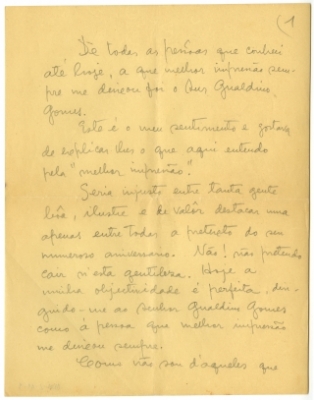 (1
De todas as pessoas que conheci
até hoje, a que melhor impressão sem-
pre me deixou foi o Snr Gualdino
Gomes.
Este é o meu sentimento e gostava
de explicar lhes o que aqui entendo
pela "melhor impressão".
Seria injusto entre tanta gente
bôa, ilustre e de valôr destacar uma
apenas entre todas a pretexto do seu
numeroso aniversario. Não! não pretendo
cair n'esta gentileza. Hoje a
minha objectividade é perfeita, diri-
gindo-me ao senhor Gualdino Gomes
como a pessoa que melhor impressão
me deixou sempre.
Como não sou d'aqueles que